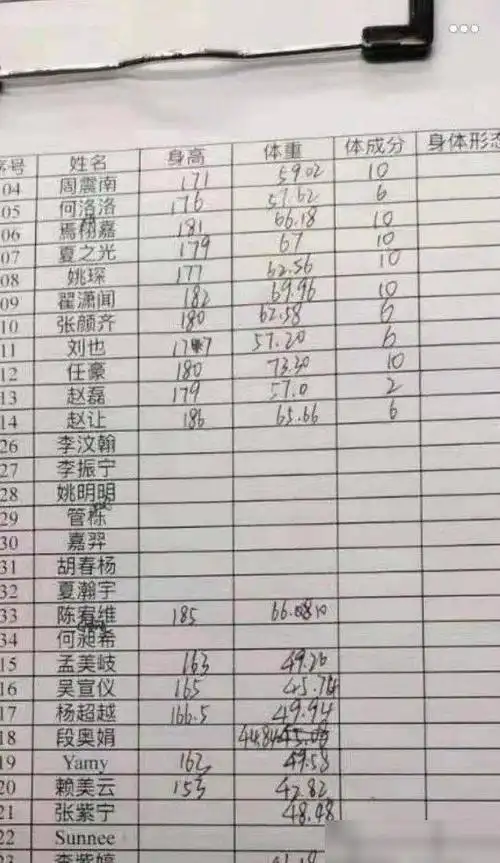 序号 姓名 身高 体重 体成分 身体形态
04 周震南 171 59.02 10
05 何洛洛 176 57.62 6
06 焉栩嘉 181 66.18 10
07 夏之光 179 67 10
08 姚琛 177 62.56 10
09 翟潇闻 182 69.96 10
10 张颜齐 180 62.58 6
11 刘也 177 57.20 6
12 任豪 180 73.30 10
13 赵磊 179 57.0 2
14 赵让 186 65.66 6
26 李汶翰
27 李振宁
28 姚明明
29 管栎
30 嘉羿
31 胡春杨
32 夏瀚宇
33 陈宥维 185
34 何昶希
15 孟美岐 163 49.26
16 吴宣仪 165 45.74
17 杨超越 166.5 49.94
18 段奥娟 44.84
19 Yamy 162 49.58
20 赖美云 153 42.82
21 张紫宁 48.48
22 Sunnee
23 李紫婷